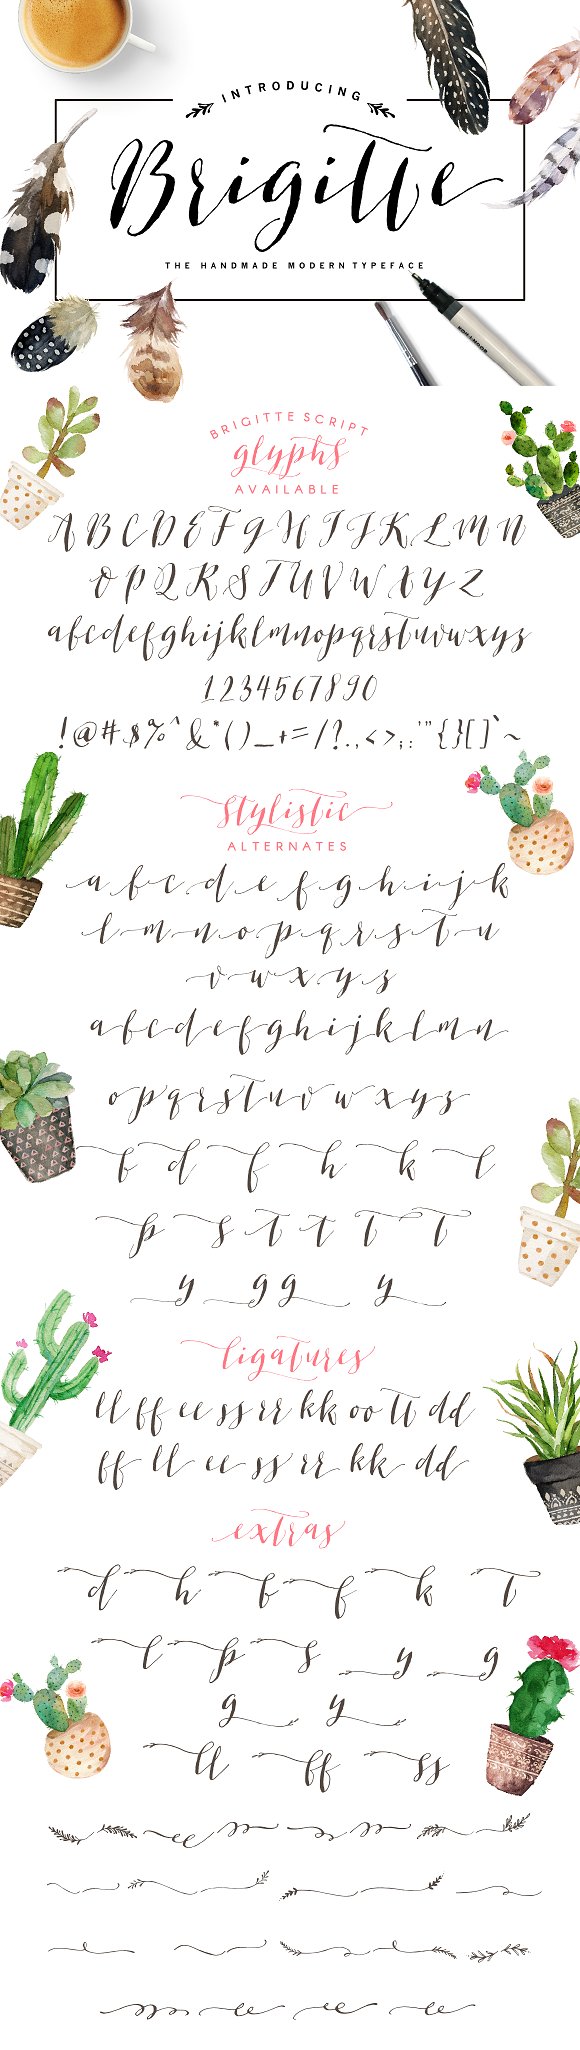 INTRODUCING
Brigitte
THE HANDMADE MODERN TYPEFACE
BRIGITTE SCRIPT
glyphs
AVAILABLE
A B C D E F G H I J K L M N
O P Q R S T U V W X Y Z
abcdefghijklmnopqrstuvwxyz
1234567890
!@#$%^&*()_+=/?.,<>;:'"{}[]`~
stylistic
ALTERNATES
a b c d e f g h i j k
l m n o p q r s t u
v w x y z
a b c d e f g h i j k l m n
o p q r s t u v w x y z
b d f h k l
p s t t t t
y g g y
ligatures
ll ff ee ss rr kk oo tt dd
ff ll ee ss rr kk dd
extras
d h b f k t
l p s y g
g y
ll ff ss